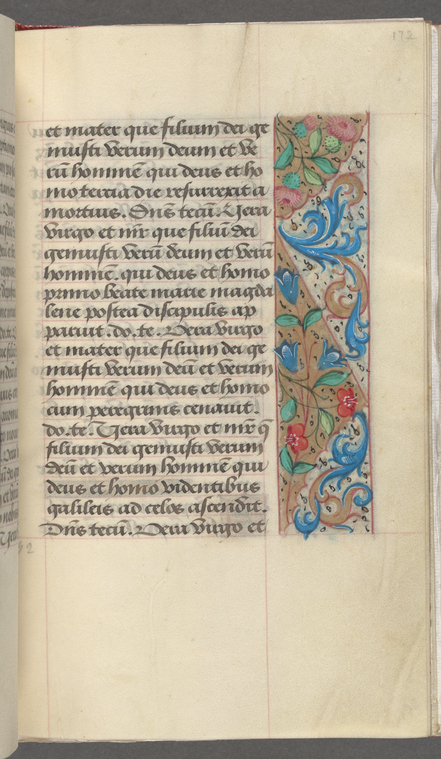 172
et mater que filium dei ge
nuisti verum deum et ve
rū hominē qui deus et ho
mo tercia die resurrexit a
mortuis. Dn̄s tecū. Vera
virgo et mr̄ que filiū dei
genuisti verū deum et verū
hominē. qui deus et homo
primo beate marie magda
lene postea discipulis ap
paruit. do. te. Vera virgo
et mater que filium dei ge
nuisti verum deū et verum
hominem qui deus et homo
cum peregrinis cenavit.
do. te. Vera virgo et mr̄ q̄
filium dei genuisti verum
deū et verum hominē qui
deus et homo videntibus
galileis ad celos ascendit.
Dn̄s tecū. Vera virgo et